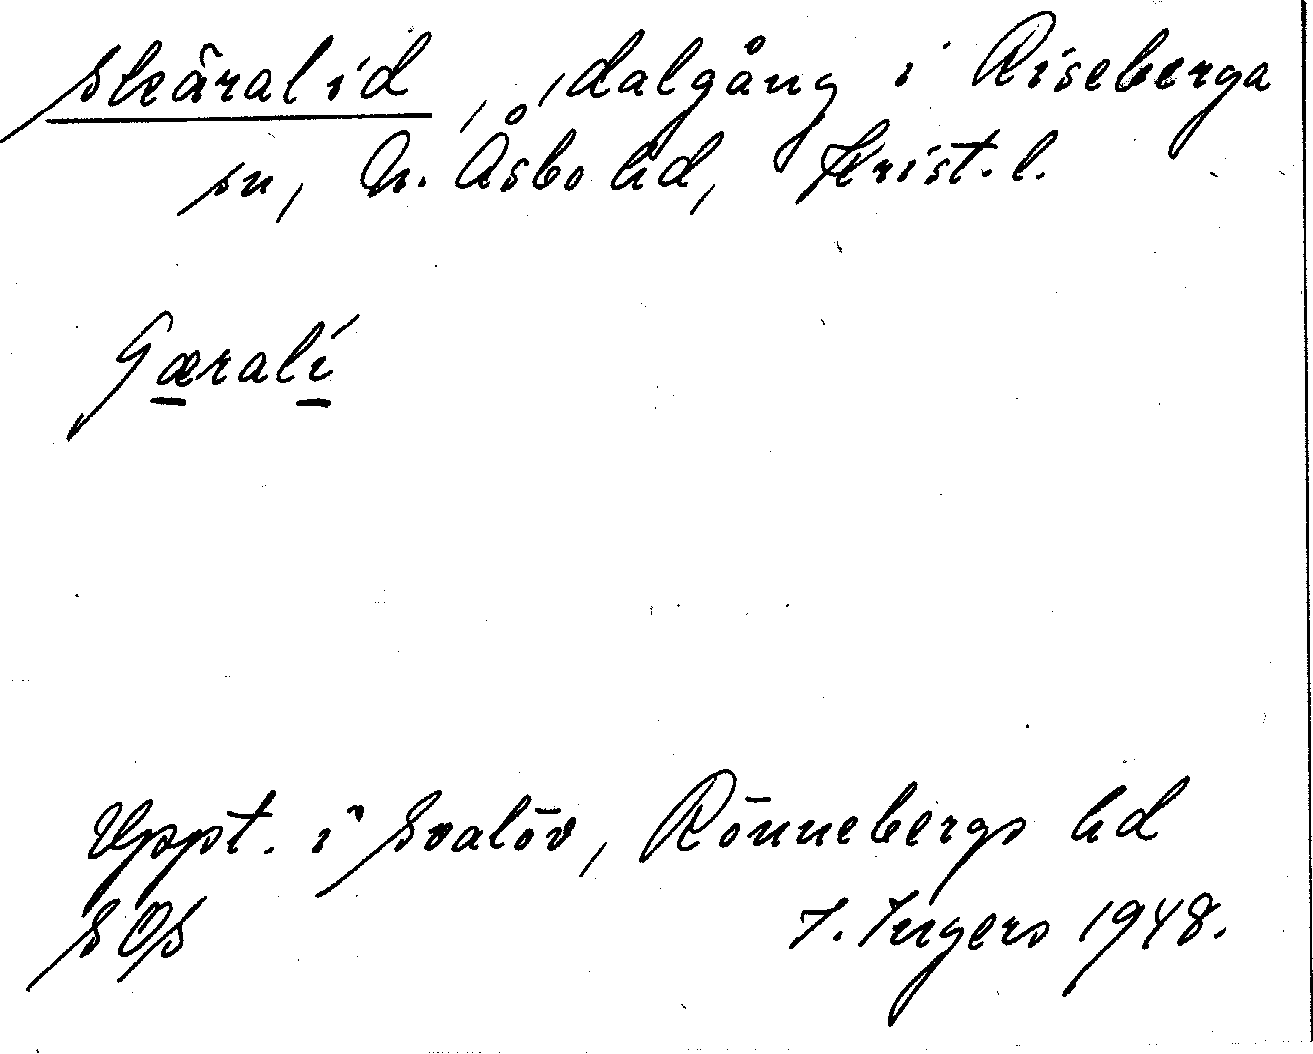 Skäralid, dalgång i Riseberga
sn, N. Åsbo hd, Krist. l.
Gæralí
Uppt. i Svalöv, Rönnebergs hd
SOS I. Ingers 1948.